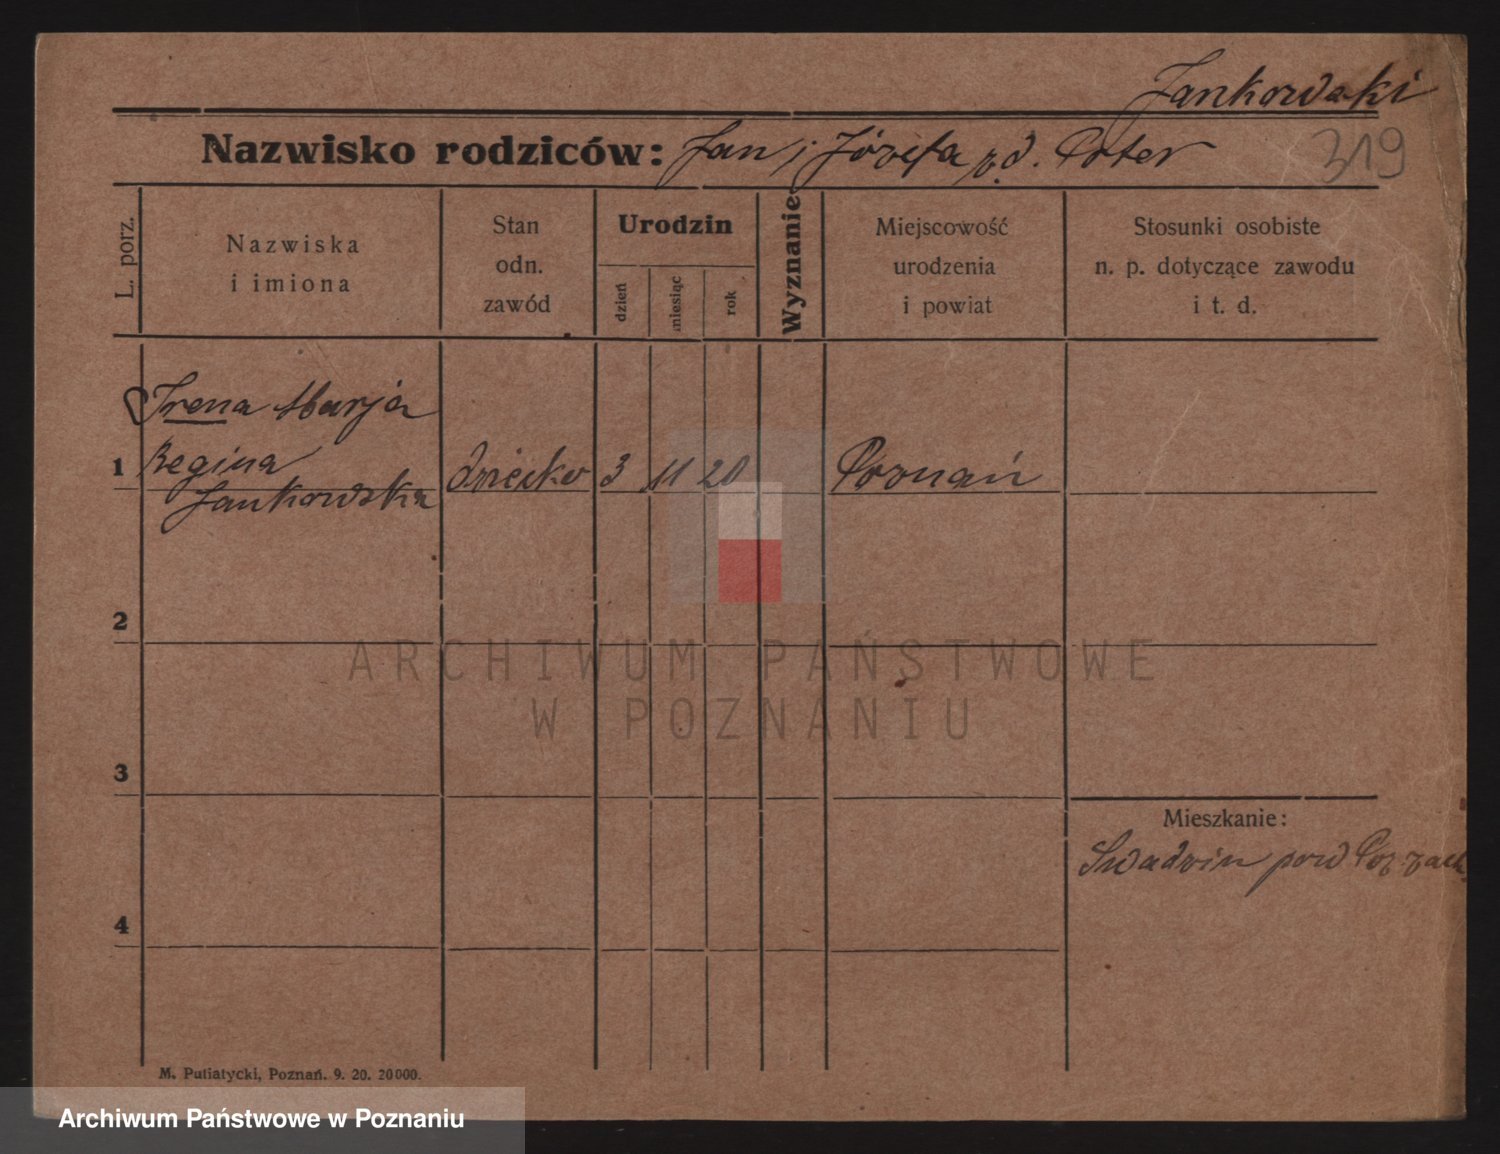 Jankowski
Nazwisko rodziców: Jan i Józefa z d. Poter
319
L. porz.
Nazwiska
i imiona
Stan
odn.
zawód
Urodzin
dzień
miesiąc
rok
Wyznanie
Miejscowość
urodzenia
i powiat
Stosunki osobiste
n. p. dotyczące zawodu
i t. d.
Irena Marja
1 Regina dziecko 3 11 20 Poznań
Jankowska
2
ARCHIWUM PAŃSTWOWE
W POZNANIU
3
Mieszkanie:
Swadzim pow Poz. zach.
4
M. Putiatycki, Poznań. 9. 20. 20000.
Archiwum Państwowe w Poznaniu